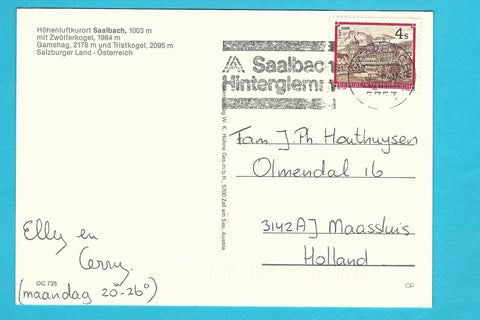 Höhenluftkurort Saalbach, 1003 m
mit Zwölferkogel, 1984 m
Gamshag, 2178 m und Tristkogel, 2095 m
Salzburger Land - Österreich
4s
REPUBLIK ÖSTERREICH
Saalbach
Hinterglemm
5753
Fam. J. Ph. Houthuysen
Olmendal 16
3142 AJ Maassluis
Holland
Elly en
Gerry.
(maandag 20°-26°)
OC 735
W. K. Höhne Ges.m.b.H., 5700 Zell am See, Austria